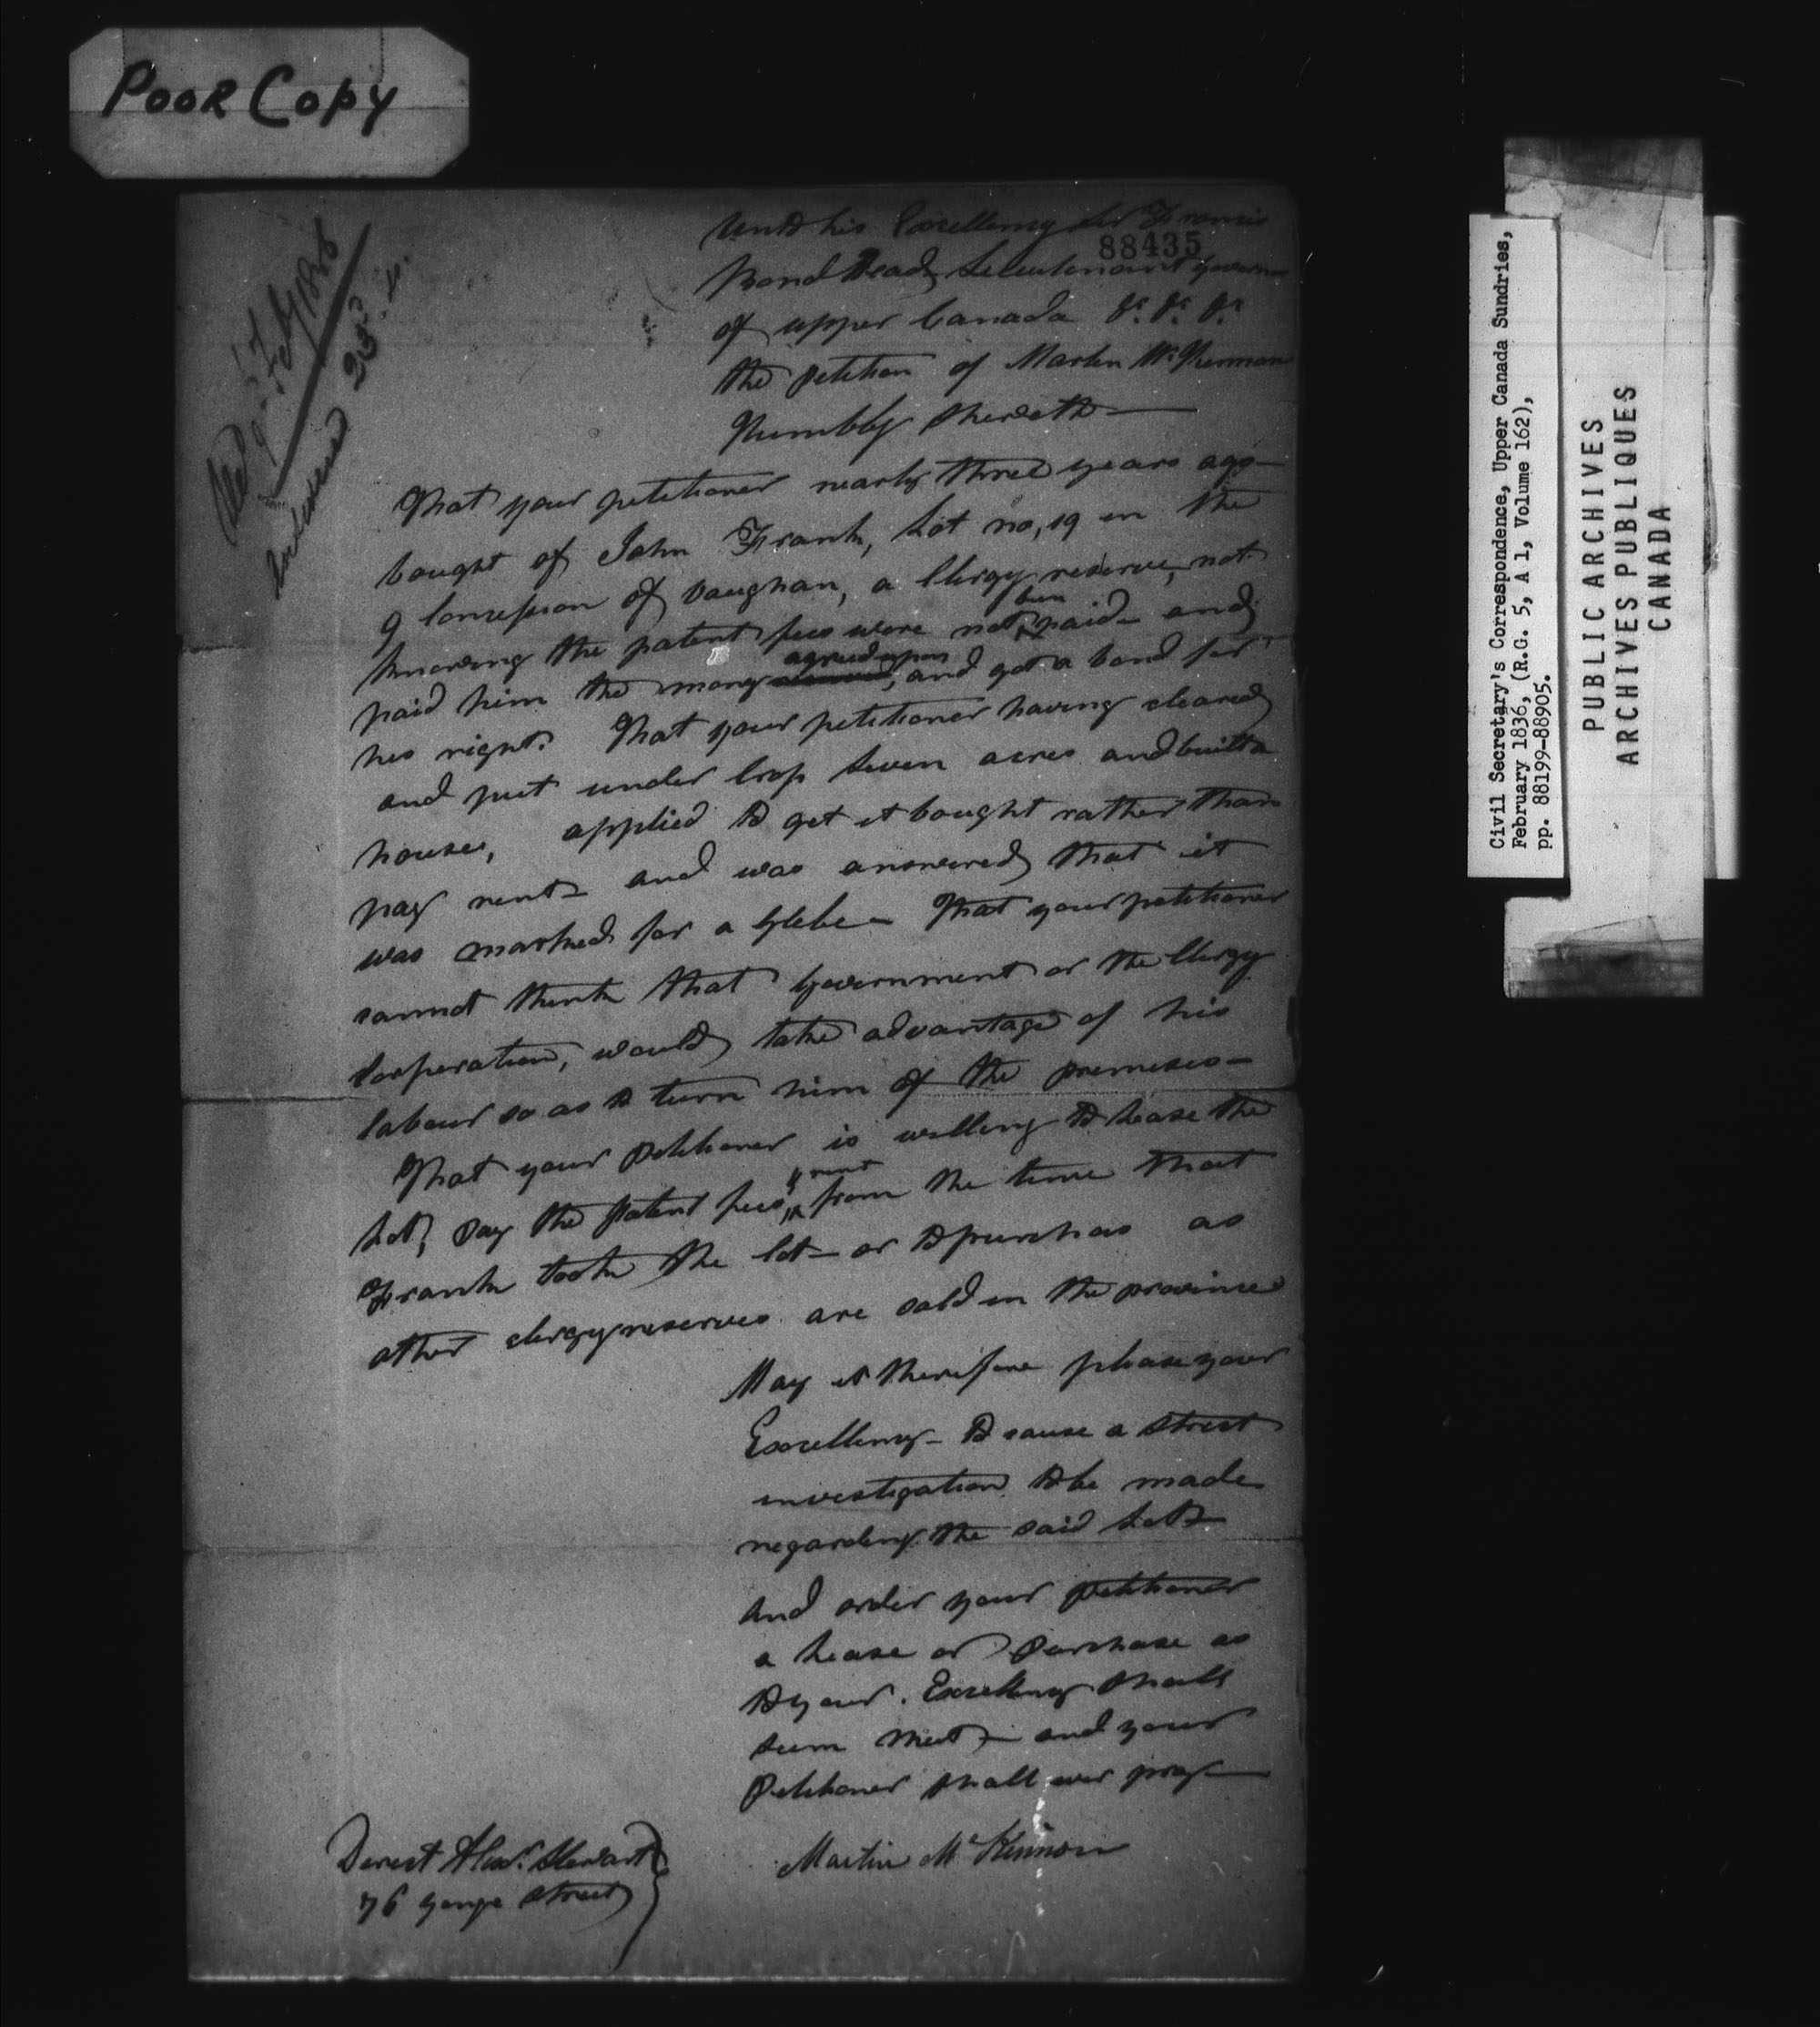 POOR COPY
88435
Unto his Excellency Sir Francis
Bond Head, Lieutenant Governor
of upper Canada &c. &c. &c.
the petition of Martin McKinnon
Humbly Sheweth —
Recd 9 Feby 1836
Answered 23d
That your petitioner nearly three years ago
bought of John Frank, Lot no, 19 in the
9 Concession of Vaughan, a Clergy reserve, not
knowing the patent fees were not been paid – and
paid him the money agreed upon, and got a bond for
his right. That your petitioner having cleared
and put under Crop Seven acres and built a
house, applied to get it bought rather than
pay rent – and was answered that it
was marked for a Glebe – That your petitioner
cannot think that Government or the Clergy
Corporation, would take advantage of his
labour so as to turn him of the premises –
That your Petitioner is willing to lease the
Lot, pay the patent fees, & rent from the time that
Frank took the lot – or to purchas as
other clergy reserves are sold in the province
May it therefore please your
Excellency – to cause a strict
investigation to be made
regarding the said Lot –
and order your petitioner
a Lease or Purchase as
to your Excellency Shall
seem meet – and your
Petitioner shall ever pray —
Martin McKinnon
Direct Alexr. Stewart
76 yonge street
Civil Secretary's Correspondence, Upper Canada Sundries,
February 1836, (R.G. 5, A 1, Volume 162),
pp. 88199-88905.
PUBLIC ARCHIVES
ARCHIVES PUBLIQUES
CANADA